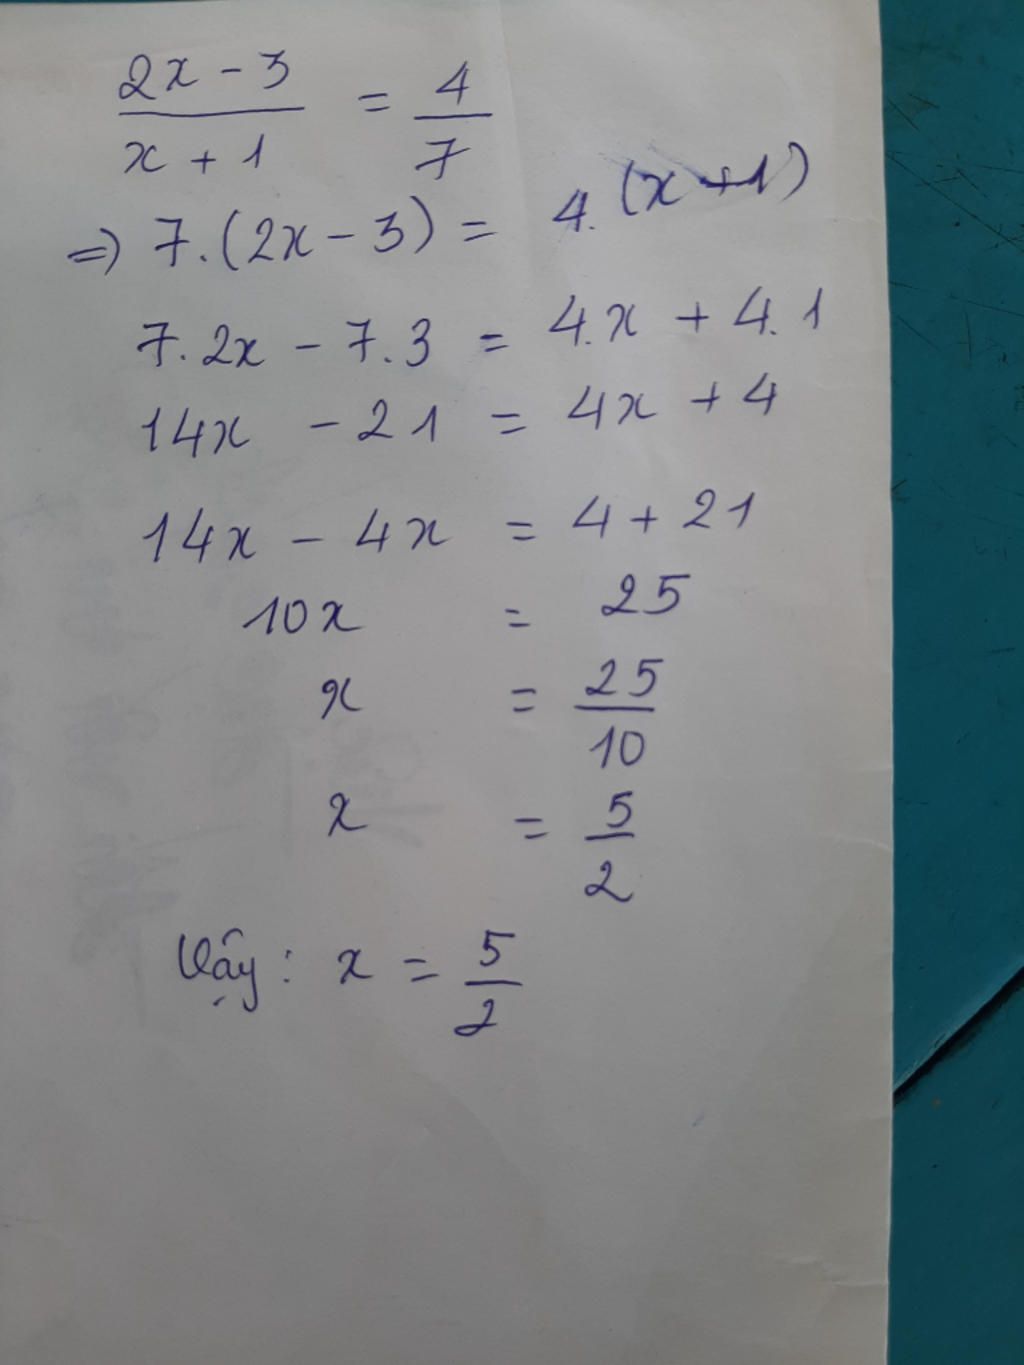 2x - 3 / x + 1 = 4 / 7
=> 7.(2x - 3) = 4.(x + 1)
7.2x - 7.3 = 4.x + 4.1
14x - 21 = 4x + 4
14x - 4x = 4 + 21
10x = 25
x = 25 / 10
x = 5 / 2
Vậy: x = 5 / 2